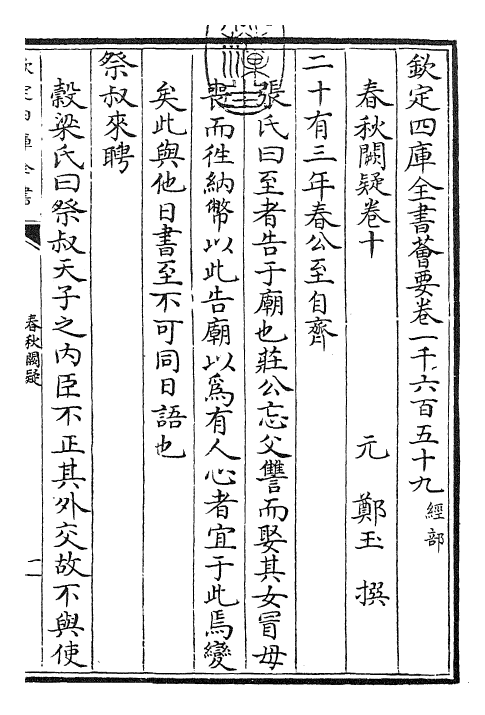 欽定四庫全書薈要卷一千六百五十九 經部
春秋闕疑卷十
元 鄭玉 撰
二十有三年春公至自齊
張氏曰至者告于廟也莊公忘父讐而娶其女冒母
喪而徃納幣以此告廟以爲有人心者宜于此焉變
矣此與他日書至不可同日語也
祭叔來聘
穀梁氏曰祭叔天子之内臣不正其外交故不與使
春秋闕疑
一